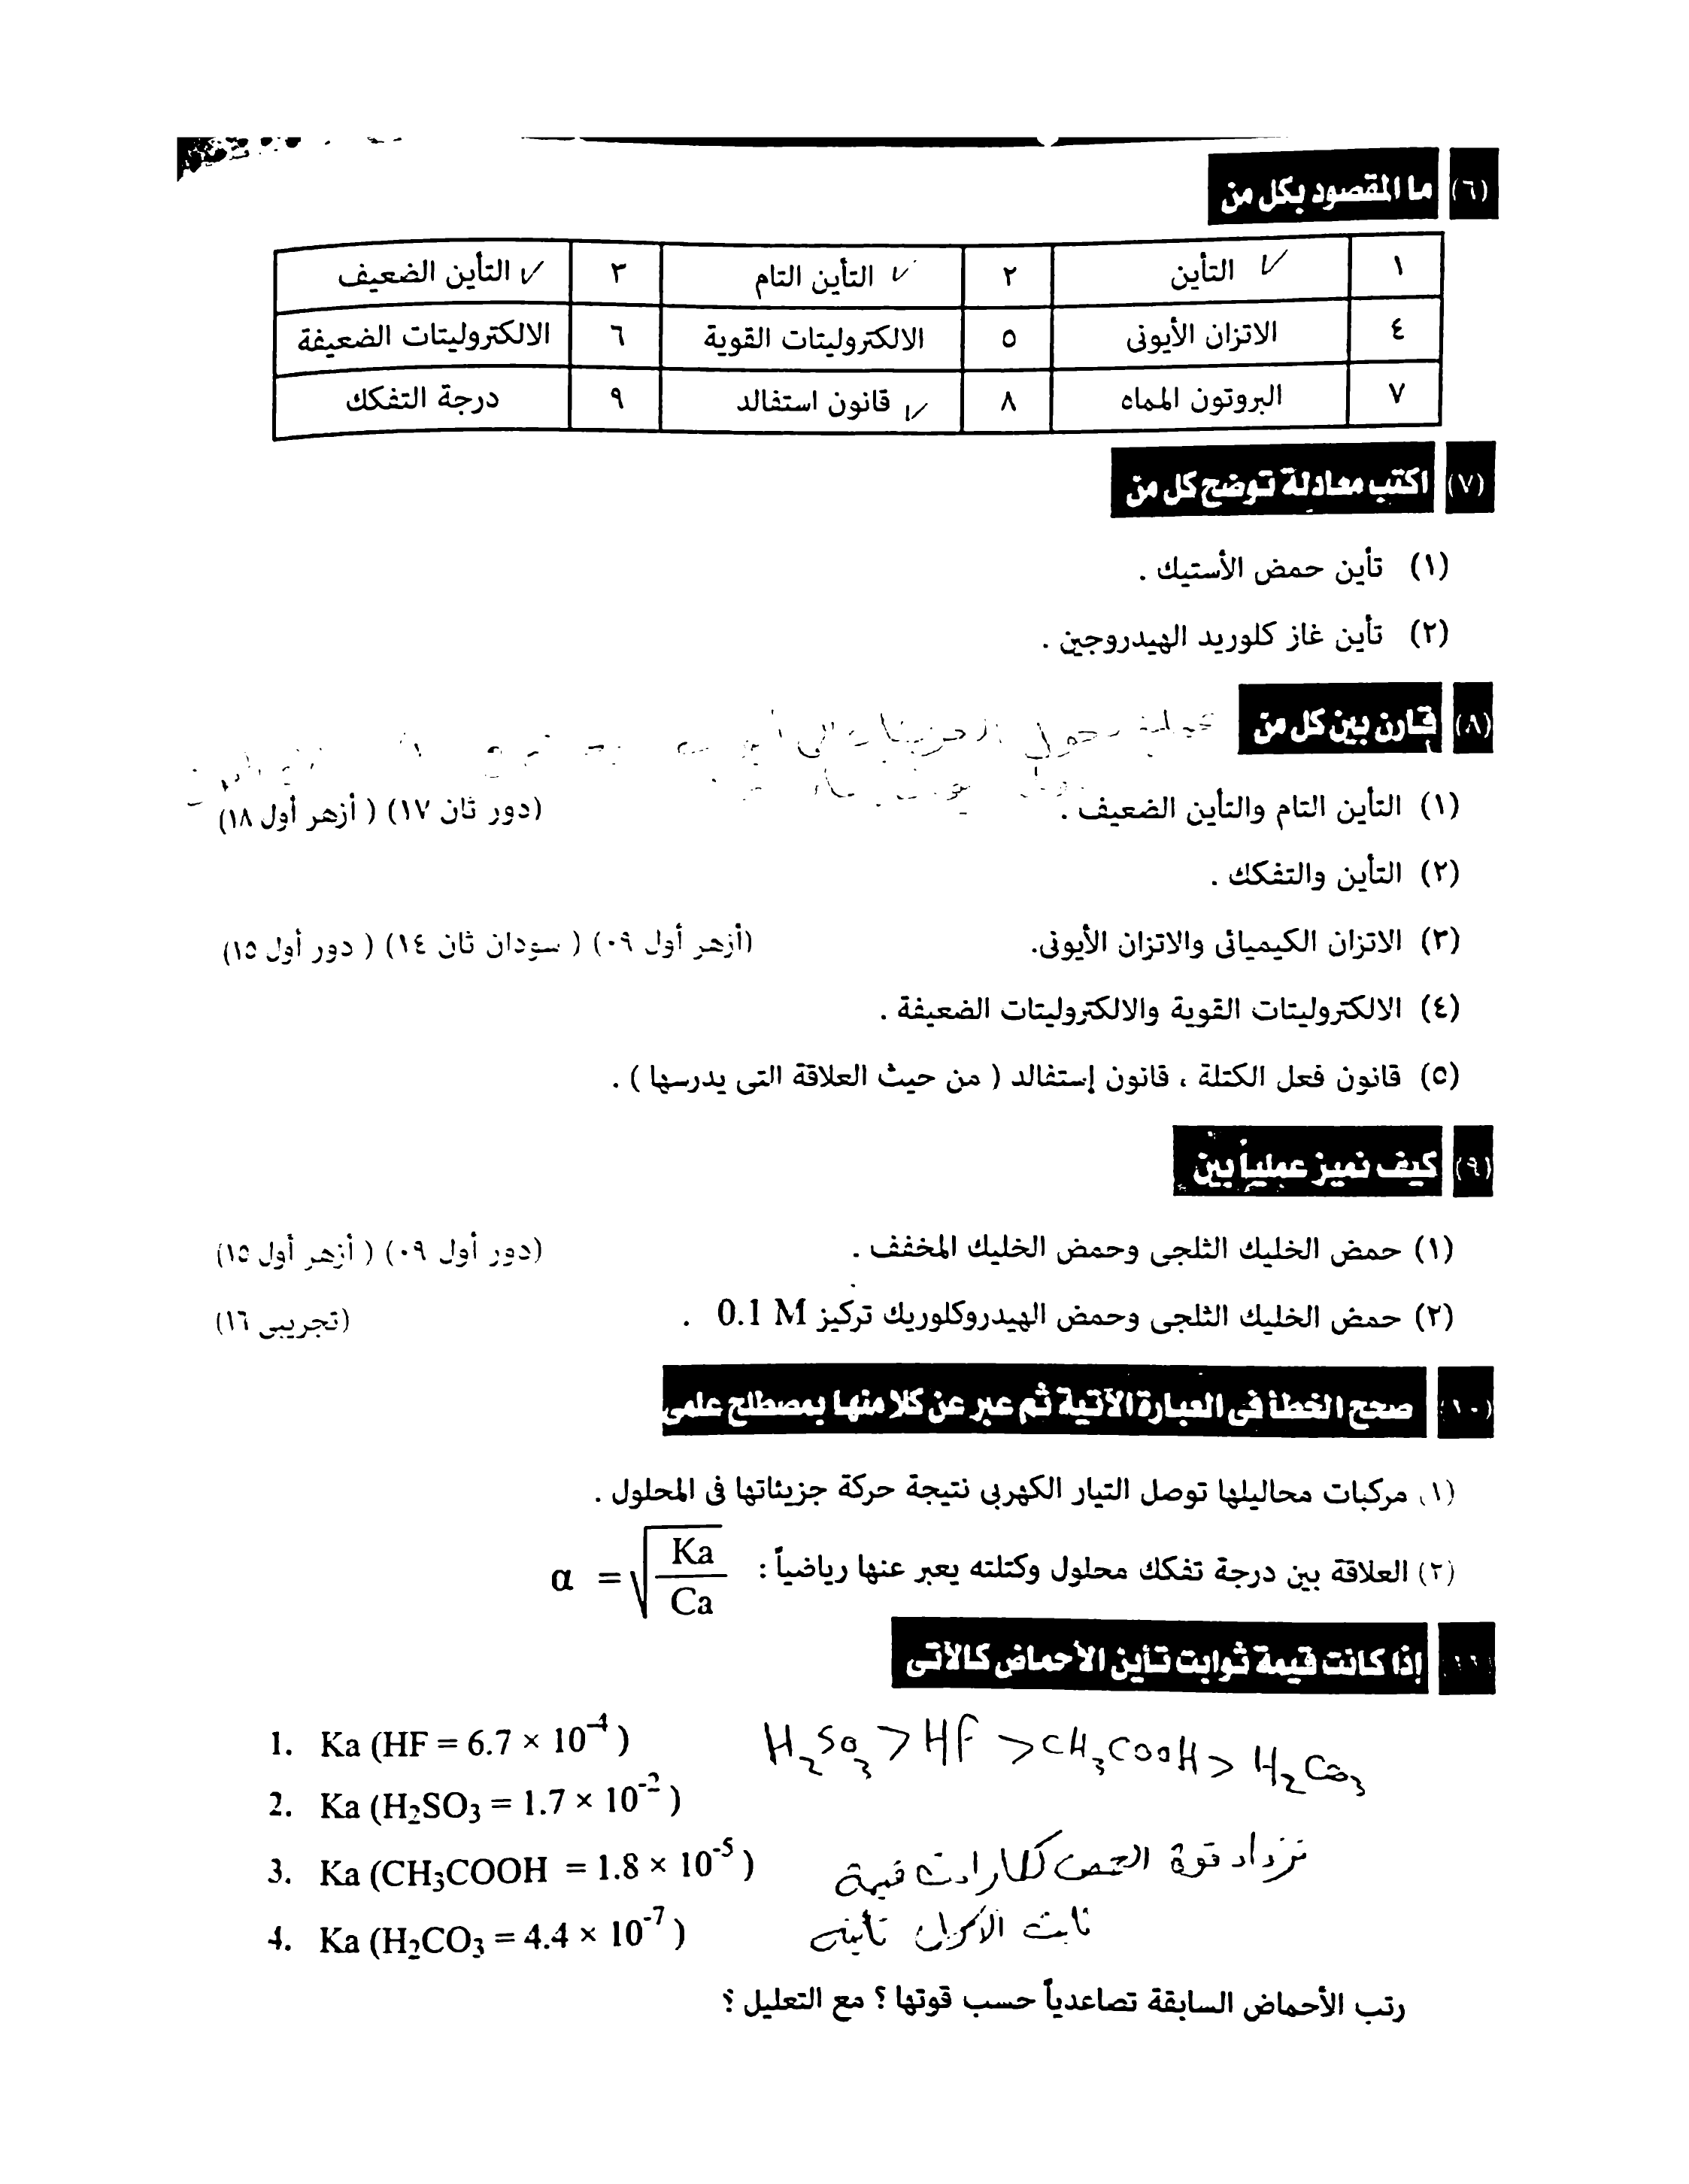 (٦) ما المقصود بكل من
١ التأين ٢ التأين التام ٣ التأين الضعيف
٤ الاتزان الأيونى ٥ الالكتروليتات القوية ٦ الالكتروليتات الضعيفة
٧ البروتون المماه ٨ قانون استفالد ٩ درجة التفكك
(٧) اكتب معادلة توضح كل من
(١) تأين حمض الأستيك .
(٢) تأين غاز كلوريد الهيدروجين .
(٨) قارن بين كل من
(١) التأين التام والتأين الضعيف . (دور ثان ١٧) ( أزهر أول ١٨)
(٢) التأين والتفكك .
(٣) الاتزان الكيميائى والاتزان الأيونى. (أزهر أول ٠٩) ( سودان ثان ١٤) ( دور أول ١٥)
(٤) الالكتروليتات القوية والالكتروليتات الضعيفة .
(٥) قانون فعل الكتلة ، قانون إستفالد ( من حيث العلاقة التى يدرسها ) .
(٩) كيف نميز عملياً بين
(١) حمض الخليك الثلجى وحمض الخليك المخفف . (دور أول ٠٩) ( أزهر أول ١٥)
(٢) حمض الخليك الثلجى وحمض الهيدروكلوريك تركيز 0.1 M . (تجريبى ١٦)
(١٠) صحح الخطأ فى العبارة الآتية ثم عبر عن كلا منها بمصطلح علمى
(١) مركبات محاليلها توصل التيار الكهربى نتيجة حركة جزيئاتها فى المحلول .
(٢) العلاقة بين درجة تفكك محلول وكتلته يعبر عنها رياضياً : α = √(Ka/Ca)
١١ إذا كانت قيمة ثوابت تأين الأحماض كالآتى
1. Ka (HF = 6.7 × 10⁻⁴ ) H₂SO₃ > HF > CH₃COOH > H₂CO₃
2. Ka (H₂SO₃ = 1.7 × 10⁻² )
3. Ka (CH₃COOH = 1.8 × 10⁻⁵ ) تزداد قوة الحمض كلما زادت قيمة
4. Ka (H₂CO₃ = 4.4 × 10⁻⁷ ) ثابت تأينه
رتب الأحماض السابقة تصاعدياً حسب قوتها ؟ مع التعليل ؟